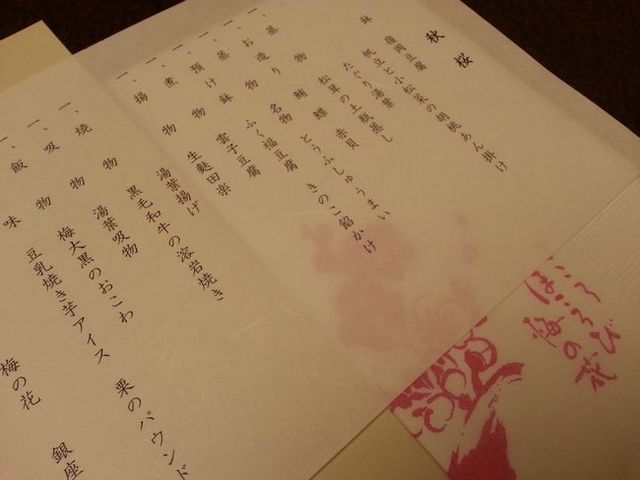 秋桜
鉢 嶺岡豆腐
帆立と小松菜の胡桃あん掛け
たぐり湯葉
一、蒸物 松茸の土瓶蒸し
一、お造り 鮪 赤貝
一、蒸物 名物 とうふしゅうまい
ふく福豆腐 きのこ餡かけ
一、預け鉢 雲子豆腐
一、煮物 生麩田楽
一、揚物 湯葉揚げ
一、焼物 黒毛和牛の溶岩焼き
一、吸物 湯葉吸物
一、飯物 梅大黒のおこわ
味 豆乳焼き芋アイス 栗のパウンド
梅の花 銀座
こころ
ほころび
梅の花